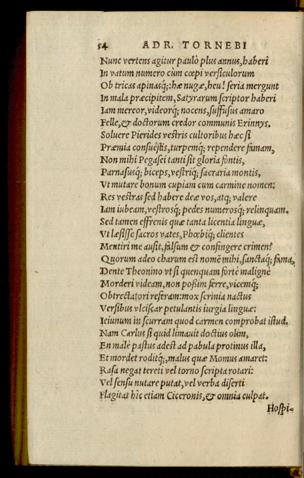 54 ADR. TORNEBI
Nunc vertens agitur paulò plus annus, haberi
In vatum numero cùm cœpi versiculorum
Ob tricas apinasq; hæ nugæ, heu! seria mergunt
In mala præcipitem, Satyrarum scriptor haberi
Iam mereor, videorq; nocens, suffusus amaro
Felle, & doctorum credor communis Erinnys.
Soluere Pierides vestris cultoribus hæc si
Præmia consuestis, turpemq; rependere fumam,
Non mihi Pegasei tanti sit gloria fontis,
Parnasusq; biceps, vestriq; sacraria montis,
Vt mutare bonum cupiam cum carmine nomen:
Res vestras sed habere deæ vos, atq; valere
Iam iubeam, vestrosq; pedes numerosq; relinquam.
Sed tamen effrenis quæ tanta licentia linguæ,
Vt læsisse sacros vates, Phœbiq; clientes
Mentiri me ausit, falsum & confingere crimen?
Quorum adeo charum est nomē mihi, sanctaq; fama,
Dente Theonino vt si quenquam fortè malignè
Morderi videam, non possim ferre, vicemq;
Obtrectatori restram: mox scrinia nactus
Versibus vlciscar petulantis iurgia linguæ:
Ieiunum in scurram quod carmen comprobat istud.
Nam Carlus si quid limauit doctius olim,
En malè pastus adest ad pabula protinus illa,
Et mordet roditq;, malus quæ Momus amaret:
Rasa negat tereti vel torno scripta rotari:
Vel sensu nutare putat, vel verba diserti
Flagitat hîc etiam Ciceronis, & omnia culpat.
Hospi-